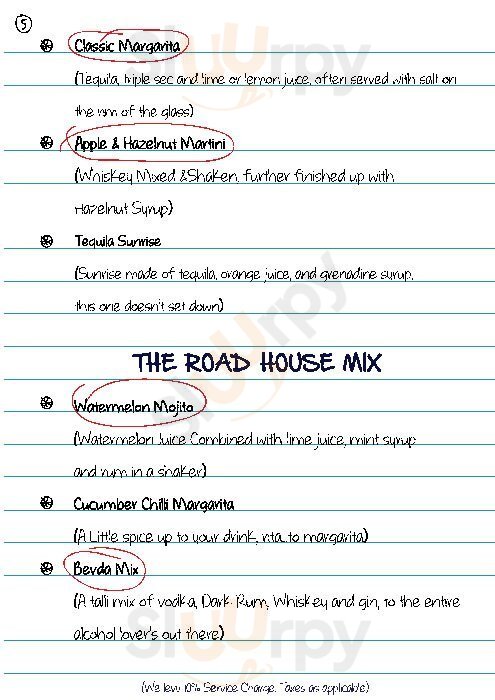 5
Classic Margarita
(Tequila, triple sec and lime or lemon juice, often served with salt on
the rim of the glass)
Apple & Hazelnut Martini
(Whiskey Mixed &Shaken, further finished up with
Hazelnut Syrup)
Tequila Sunrise
(Sunrise made of tequila, orange juice, and grenadine syrup,
this one doesn't set down)
THE ROAD HOUSE MIX
Watermelon Mojito
(Watermelon Juice Combined with lime juice, mint syrup
and rum in a shaker)
Cucumber Chilli Margarita
(A Little spice up to your drink, nta.. to margarita)
Bevda Mix
(A talli mix of vodka, Dark Rum, Whiskey and gin, to the entire
alcohol lover's out there)
(We levy 10% Service Charge. Taxes as applicable)
Slurrpy